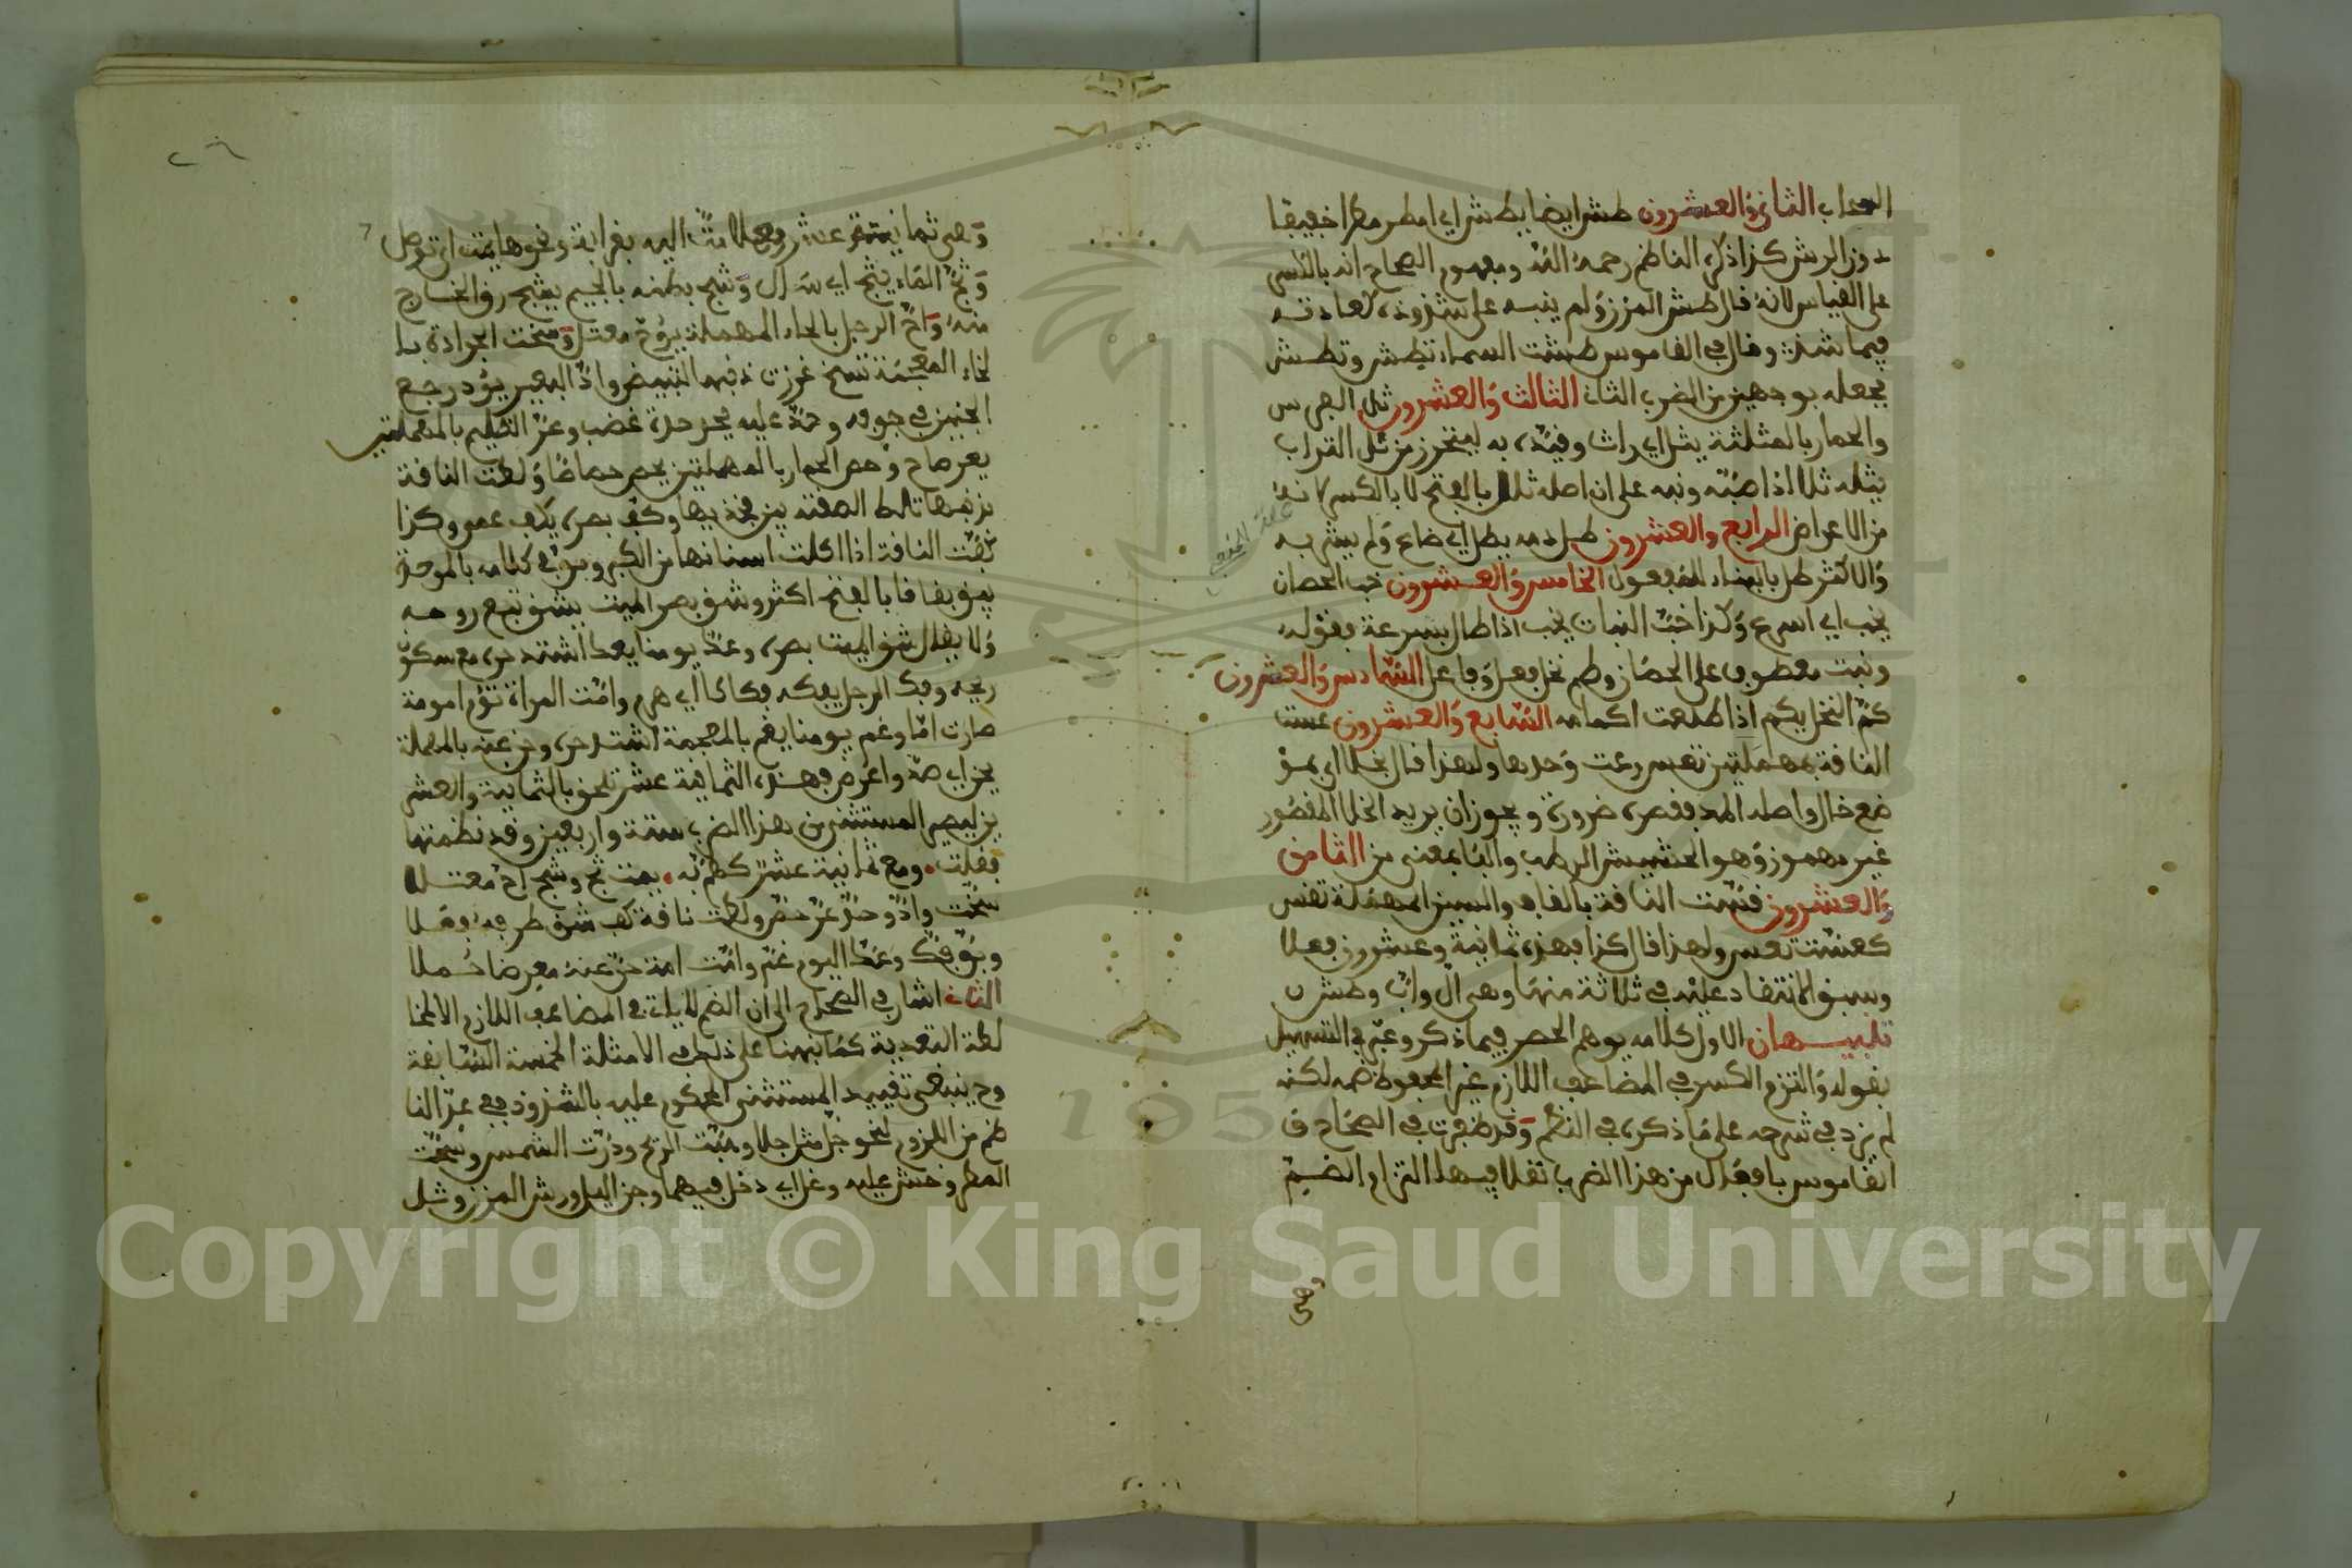 السحاب الثاني والعشرون طش ايضا يطش اي امطر مطرا خفيفا
دون الرش كذا ذكره الناظم رحمه الله ومفهوم الصحاح انه بالكسر
على القياس لانه قال طش المزن ولم ينبه على شذوذه كعادته
فيما شذ وقال في القاموس طشت السماء تطش وتطش
فجعله بوجهين من الضرب الثاني الثالث والعشرون ثل الفرس
والحمار بالمثلثة يثل اي راث وقيده به ليتحرز من ثل التراب
يثله ثلا اذا صبه ونبه على ان اصله ثلل بالفتح لا بالكسر لانه
من الاعراض الرابع والعشرون طل دمه يطل اي ضاع ولم يثر به
والاكثر طل بالبناء للمفعول الخامس والعشرون خب الحصان
يخب اي اسرع وكذا خب النبات يخب اذا طال بسرعة فقوله
ونبت معطوف على الحصان وطم نخل فعل وفاعل السادس والعشرون
كم النخل يكم اذا طلعت اكمامه السابع والعشرون عست
الناقة بمهملتين تعس رعت وحدها ولهذا قال بخلا اي بمو
ضع خال واصله المد فقصره ضرورة ويجوز ان يريد الخلا المقصور
غير مهموز وهو الحشيش الرطب والبا بمعنى من الثامن
والعشرون قست الناقة بالقاف والسين المهملة تقس
كعست تعس ولهذا قال كذا فهذه ثمانية وعشرون فعلا
وسبق الانتقاد عليه في ثلاثة منها وهي ال واب وطش
تنبيهان الاول كلامه يوهم الحصر فيما ذكر وعبر في التسهيل
بقوله والتزم الكسر في المضاعف اللازم غير المحفوظ ضمه لكنه
لم يزد في شرحه على ما ذكره في النظم وقد ظفرت في الصحاح و
القاموس بافعال من هذا الضرب نقلا فيها التزام الضم
وهي
وهي ثمانية عشر فعلا مت اليه بقرابة ونحوها يمت اي توصل
وثج الماء يثج اي سال وشج بطنه بالجيم يشج رق الخارج
منه واح الرجل بالحاء المهملة يؤح معتل وسخت الجرادة با
لخاء المعجمة تسخ غرزت ذنبها لتبيض واد البعير يؤد رجع
الحنين في جوفه وحد عليه يحد حدة غضب وعر الظليم بالمهملتين
يعر صاح وحص الحمار بالمهملتين يحص حصاصا ولطت الناقة
بذنبها تلط الصقته بين فخذيها وكف بصره يكف عمي وكذا
كفت الناقة اذا اكلت اسنانها من الكبر وبق في كلامه بالموحدة
يبق بقاقا بالفتح اكثر وشق بصر الميت يشق تبع روحه
ولا يقال شق الميت بصره وعك يومنا يعك اشتد حره مع سكون
ريحه وفك الرجل يفك فكاكا اي هرم وامت المراة تؤم امومة
صارت اما وغم يومنا يغم بالمعجمة اشتد حره وحز عنه بالمهملة
يحز اي صد واعرض فهذه الثمانية عشر تلحق بالثمانية والعشر
ين ليصير المستثنى من هذا الضرب ستة واربعين وقد نظمتها
فقلت ومع ثمانية عشر كظم به يمت ثج وشج اح معتلا
سخت واد وحد عر حص ولطت ناقة كف شق طرفه فعلا
وبق فك وعك اليوم غم وامت امة حز عنه معرضا حملا
الثاني اشار في الصحاح الى ان الضم لا ياتي في المضاعف اللازم الا لخا
لطة التعدية كما نبهنا على ذلك في الامثلة الخمسة السابقة
وح ينبغي تقييد المستثنى المحكوم عليه بالشذوذ ففي عبر النا
ظم من اللزوم لنحو جل مثل جلا وهبت الريح وذرت الشمس وسحت
المطر وخش عليه وغل اي دخل فيهما وجن اليل ورش المزن وشل